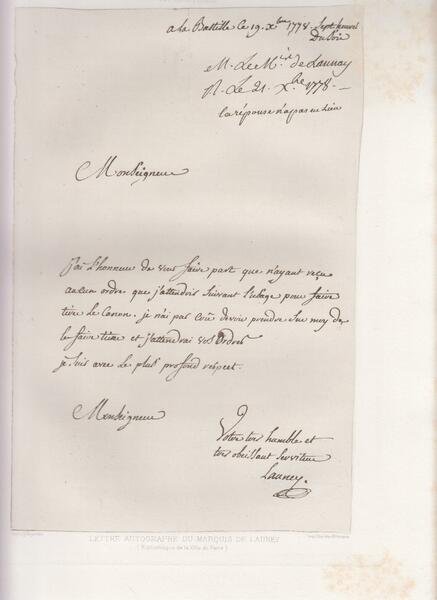 a la Bastille ce 19. Xbre 1778. Sept heures
Du Soir
M. Le Mis de Launay
R. Le 21. Xbre 1778. —
la réponse n'a pas eu lieu
Monseigneur
J'ai L'honneur de vous faire part que n'ayant reçu
aucun ordre que j'attendois suivant l'usage pour faire
tirer le Canon. je n'ai pas crû devoir prendre sur moy de
le faire tirer et j'attendrai vos Ordres
je suis avec le plus profond respect.
Monseigneur
Votre très humble et
très obéissant serviteur
Launey.
LETTRE AUTOGRAPHE DU MARQUIS DE LAUNEY
(Bibliothèque de la Ville de Paris)